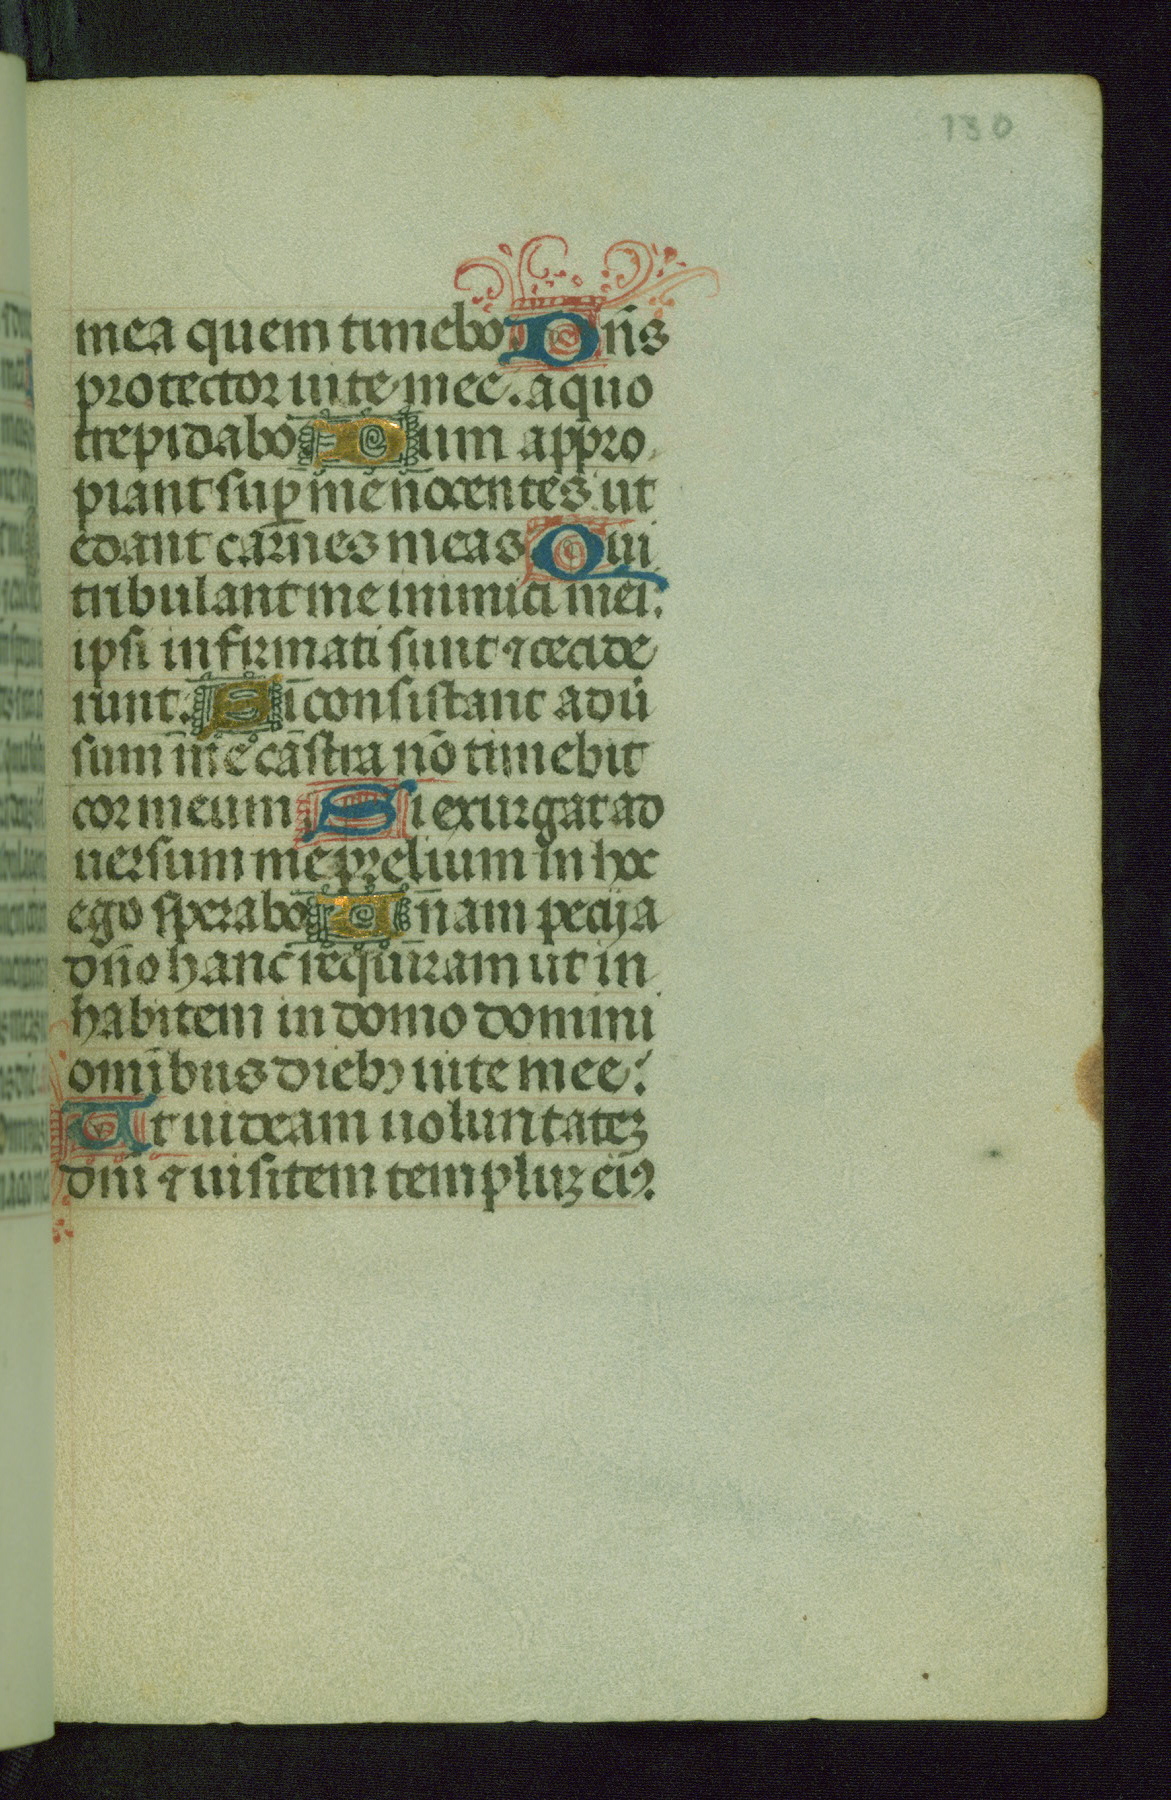 130
mea quem timebo Dn̄s
protector uite mee. a quo
trepidabo Cum appro
piant sup̱ me nocentes ut
edant carnes meas Qui
tribulant me inimici mei.
ipsi infirmati sunt ⁊ cecide
runt. Si consistant adū
sum me castra nō timebit
cor meum Si exurgat ad
uersum me prelium in hoc
ego sperabo Unam pecij a
dn̄o hanc requiram ut in
habitem in domo domini
omībus dieb; uite mee.
Ut uideam uoluntateꝫ
dn̄i ⁊ uisitem templuꝫ eiꝰ.